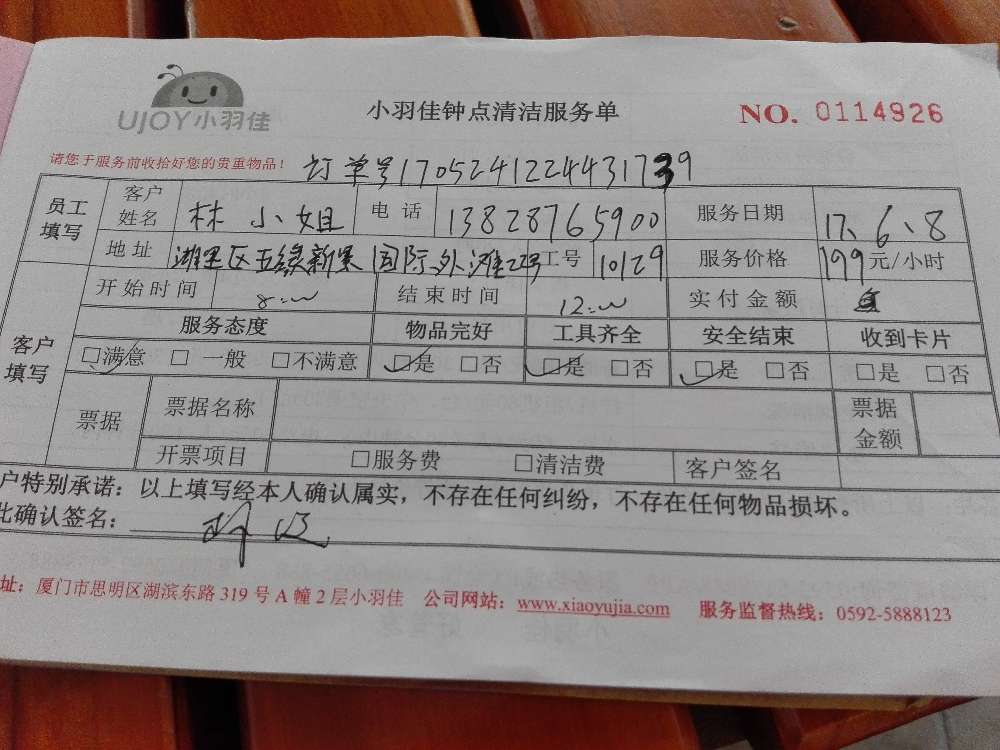 UJOY小羽佳
小羽佳钟点清洁服务单
NO. 0114926
请您于服务前收拾好您的贵重物品！
订单号1705241224431739
员工填写 客户姓名 林小姐 电话 13828765900 服务日期 17.6.8
地址 湖里区五缘新 国际外滩 工号 10129 服务价格 199元/小时
客户填写 开始时间 8:00 结束时间 12:00 实付金额
服务态度 物品完好 工具齐全 安全结束 收到卡片
□满意 □一般 □不满意 □是 □否 □是 □否 □是 □否 □是 □否
票据 票据名称 票据金额
开票项目 □服务费 □清洁费 客户签名
户特别承诺：以上填写经本人确认属实，不存在任何纠纷，不存在任何物品损坏。
此确认签名：
址：厦门市思明区湖滨东路 319 号 A 幢 2 层小羽佳 公司网站：www.xiaoyujia.com 服务监督热线：0592-5888123